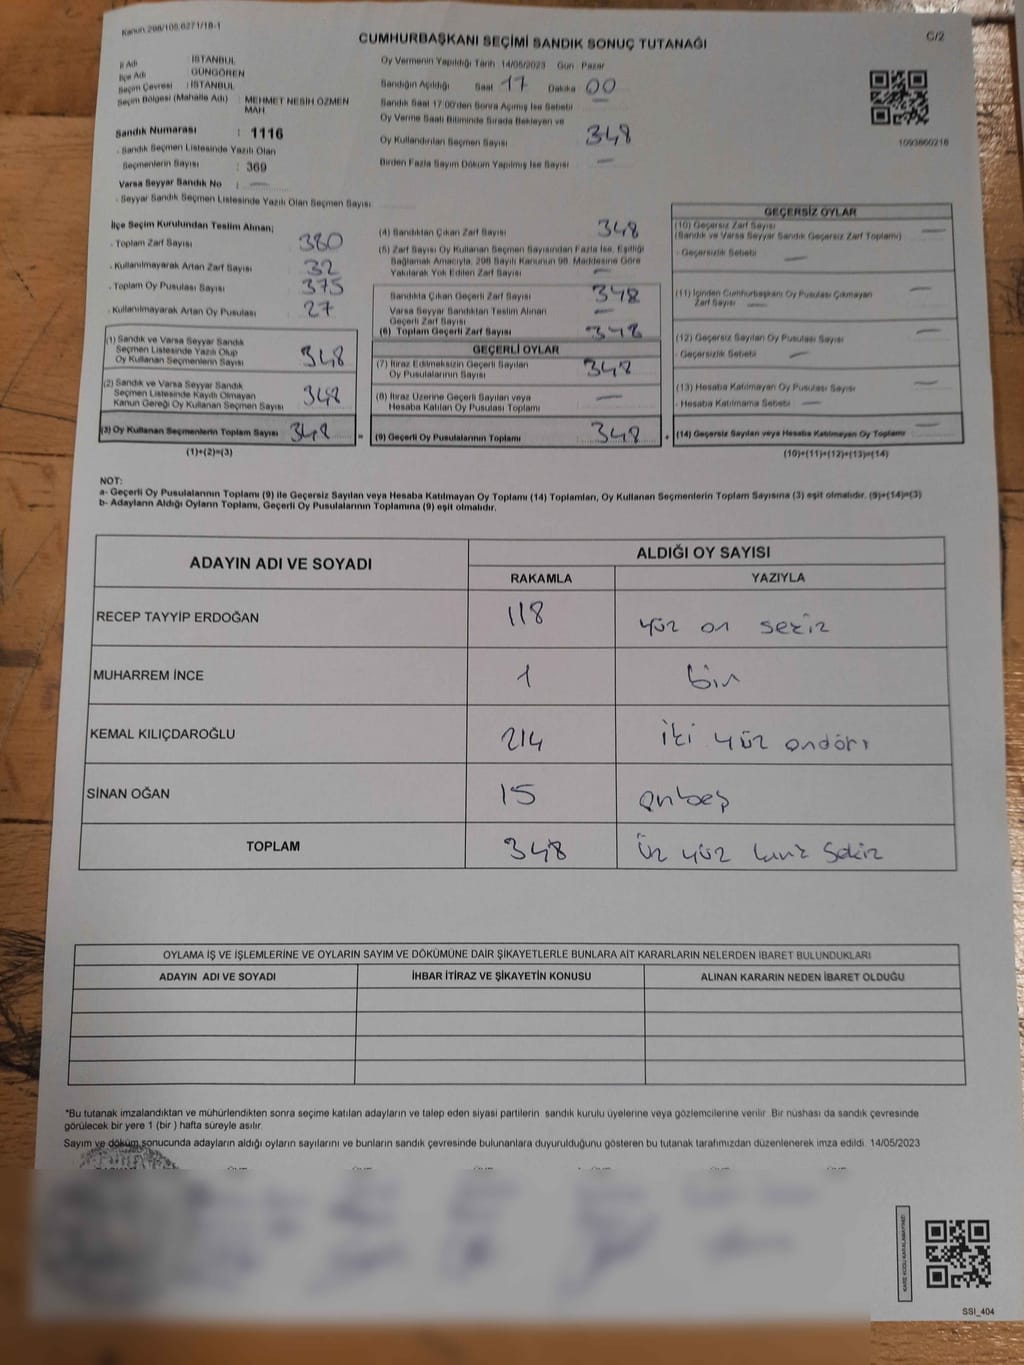 Kanun.298/105.6271/18-1
C/2
CUMHURBAŞKANI SEÇİMİ SANDIK SONUÇ TUTANAĞI
İl Adı : İSTANBUL
İlçe Adı : GÜNGÖREN
Seçim Çevresi : İSTANBUL
Seçim Bölgesi (Mahalle Adı) : MEHMET NESİH ÖZMEN MAH.
Sandık Numarası : 1116
- Sandık Seçmen Listesinde Yazılı Olan
Seçmenlerin Sayısı : 369
Varsa Seyyar Sandık No : —
- Seyyar Sandık Seçmen Listesinde Yazılı Olan Seçmen Sayısı:
Oy Vermenin Yapıldığı Tarih 14/05/2023 Gün : Pazar
Sandığın Açıldığı Saat 17 Dakika 00
Sandık Saat 17:00'den Sonra Açılmış İse Sebebi —
Oy Verme Saati Bitiminde Sırada Bekleyen ve
Oy Kullandırılan Seçmen Sayısı 348
Birden Fazla Sayım Döküm Yapılmış İse Sayısı —
1093860216
İlçe Seçim Kurulundan Teslim Alınan;
. Toplam Zarf Sayısı 380
. Kullanılmayarak Artan Zarf Sayısı 32
. Toplam Oy Pusulası Sayısı 375
. Kullanılmayarak Artan Oy Pusulası 27
(1) Sandık ve Varsa Seyyar Sandık
Seçmen Listesinde Yazılı Olup
Oy Kullanan Seçmenlerin Sayısı 348
(2) Sandık ve Varsa Seyyar Sandık
Seçmen Listesinde Kayıtlı Olmayan
Kanun Gereği Oy Kullanan Seçmen Sayısı 348
(3) Oy Kullanan Seçmenlerin Toplam Sayısı 348 =
(1)+(2)=(3)
(4) Sandıktan Çıkan Zarf Sayısı 348
(5) Zarf Sayısı Oy Kullanan Seçmen Sayısından Fazla İse, Eşitliği
Sağlamak Amacıyla, 298 Sayılı Kanunun 98. Maddesine Göre
Yakılarak Yok Edilen Zarf Sayısı —
Sandıkta Çıkan Geçerli Zarf Sayısı 348
Varsa Seyyar Sandıktan Teslim Alınan
Geçerli Zarf Sayısı —
(6) Toplam Geçerli Zarf Sayısı 348
GEÇERLİ OYLAR
(7) İtiraz Edilmeksizin Geçerli Sayılan
Oy Pusulalarının Sayısı 348
(8) İtiraz Üzerine Geçerli Sayılan veya
Hesaba Katılan Oy Pusulası Toplamı —
(9) Geçerli Oy Pusulalarının Toplamı 348 +
GEÇERSİZ OYLAR
(10) Geçersiz Zarf Sayısı
(Sandık ve Varsa Seyyar Sandık Geçersiz Zarf Toplamı) —
- Geçersizlik Sebebi —
(11) İçinden Cumhurbaşkanı Oy Pusulası Çıkmayan
Zarf Sayısı —
(12) Geçersiz Sayılan Oy Pusulası Sayısı —
- Geçersizlik Sebebi —
(13) Hesaba Katılmayan Oy Pusulası Sayısı —
- Hesaba Katılmama Sebebi —
(14) Geçersiz Sayılan veya Hesaba Katılmayan Oy Toplamı —
(10)+(11)+(12)+(13)=(14)
NOT:
a- Geçerli Oy Pusulalarının Toplamı (9) ile Geçersiz Sayılan veya Hesaba Katılmayan Oy Toplamı (14) Toplamları, Oy Kullanan Seçmenlerin Toplam Sayısına (3) eşit olmalıdır. (9)+(14)=(3)
b- Adayların Aldığı Oyların Toplamı, Geçerli Oy Pusulalarının Toplamına (9) eşit olmalıdır.
ADAYIN ADI VE SOYADI
ALDIĞI OY SAYISI
RAKAMLA YAZIYLA
RECEP TAYYİP ERDOĞAN 118 yüz on sekiz
MUHARREM İNCE 1 bir
KEMAL KILIÇDAROĞLU 214 iki yüz ondört
SİNAN OĞAN 15 onbeş
TOPLAM 348 Üç yüz kırk sekiz
OYLAMA İŞ VE İŞLEMLERİNE VE OYLARIN SAYIM VE DÖKÜMÜNE DAİR ŞİKAYETLERLE BUNLARA AİT KARARLARIN NELERDEN İBARET BULUNDUKLARI
ADAYIN ADI VE SOYADI İHBAR İTİRAZ VE ŞİKAYETİN KONUSU ALINAN KARARIN NEDEN İBARET OLDUĞU
*Bu tutanak imzalandıktan ve mühürlendikten sonra seçime katılan adayların ve talep eden siyasi partilerin sandık kurulu üyelerine veya gözlemcilerine verilir. Bir nüshası da sandık çevresinde
görülecek bir yere 1 (bir ) hafta süreyle asılır.
Sayım ve döküm sonucunda adayların aldığı oyların sayılarını ve bunların sandık çevresinde bulunanlara duyurulduğunu gösteren bu tutanak tarafımızdan düzenlenerek imza edildi. 14/05/2023
KARE KODU KARALAMAYINIZ!
SSI_404